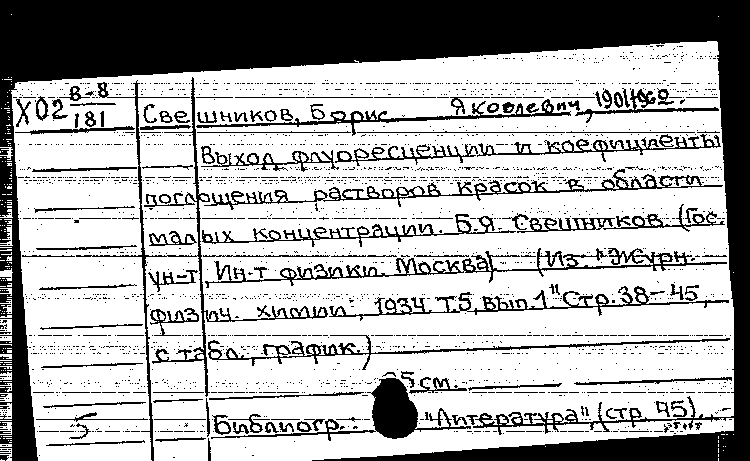 Х02 В-8/181 Свешников, Борис Яковлевич, 1901/1962.
Выход флуоресценции и коефициенты
поглощения растворов красок в области
малых концентрации. Б.Я. Свешников. (Гос.
ун-т, Ин-т физики. Москва). (Из: "Журн.
физич. химии", 1934. Т.5, вып.1" Стр. 38-45,
с табл., график.)
25 см.
5 Библиогр.: "Литература" (стр. 45).